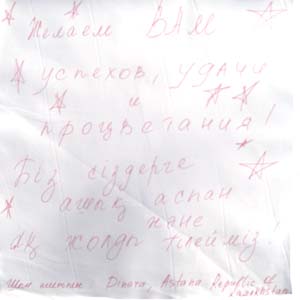 Желаем ВАМ
успехов, удачи
и
процветания!
Біз сіздерге
ашық аспан
және
ақ жолды тілейміз!
Шын ниетпен Dinara, Astana Republic of
Kazakhstan